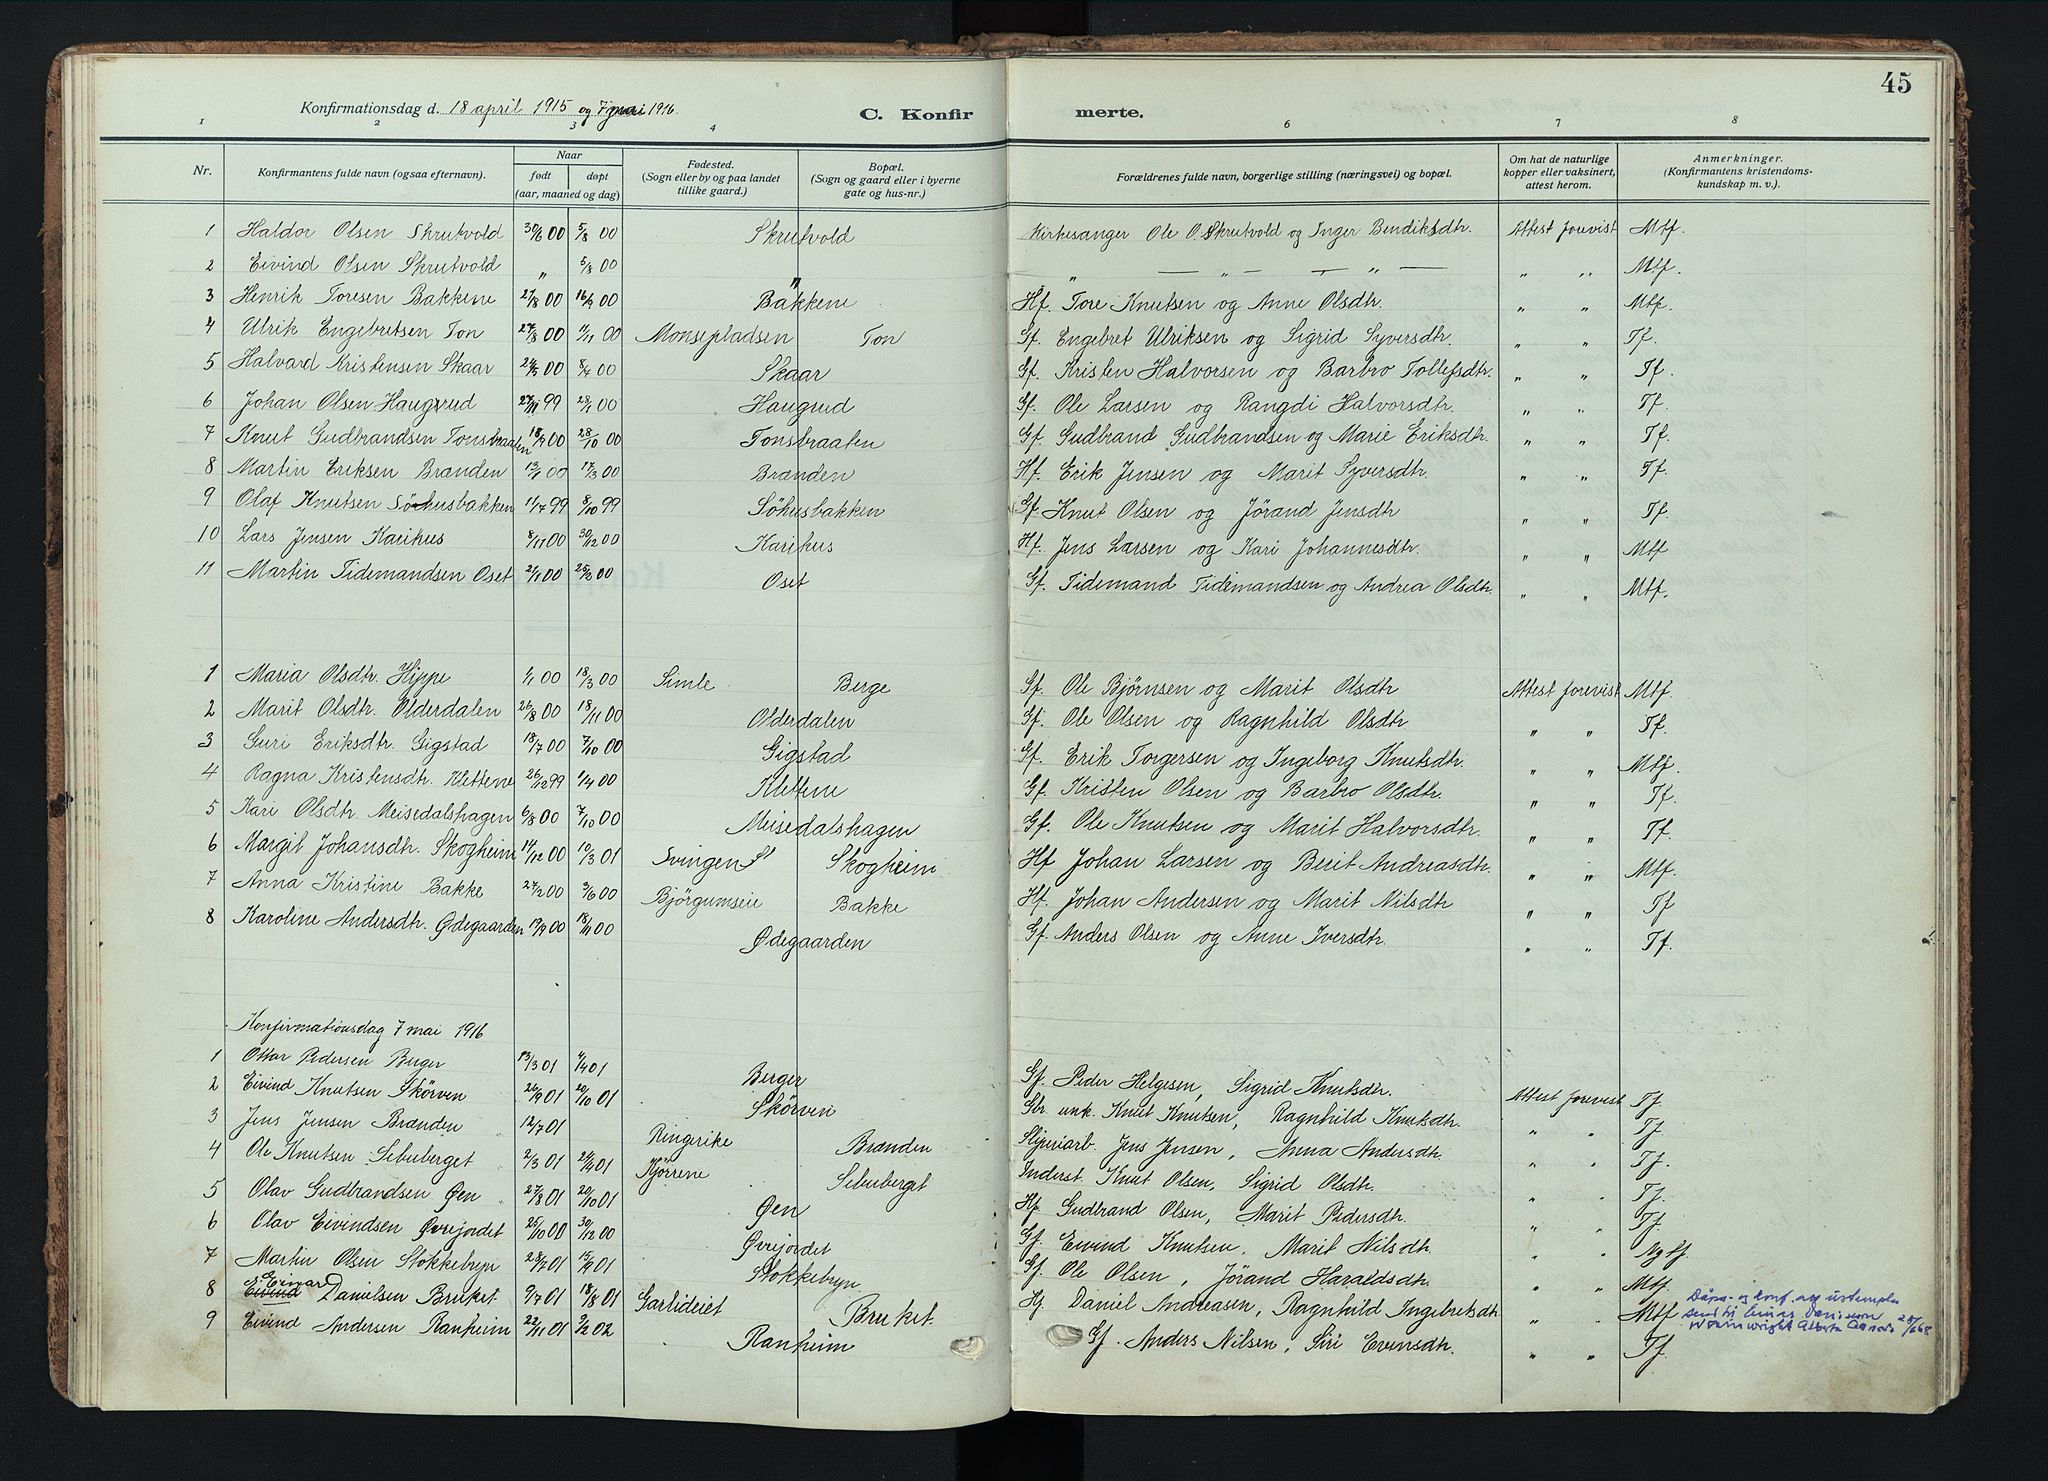 45
Konfirmationsdag d. 18 april 1915 og 7 mai 1916.
C. Konfirmerte.
1 2 3 4 6 7 8
Nr. Konfirmantens fulde navn (ogsaa efternavn). Naar født døpt (aar, maaned og dag) Fødested. (Sogn eller by og paa landet tillike gaard.) Bopæl. (Sogn og gaard eller i byerne gate og hus-nr.) Forældrenes fulde navn, borgerlige stilling (næringsvei) og bopæl. Om hat de naturlige kopper eller vaksinert, attest herom. Anmerkninger. (Konfirmantens kristendomskundskap m. v.).
1 Haldor Olsen Skrutvold 30/6 00 5/8 00 Skrutvold Kirkesanger Ole O. Skrutvold og Inger Bendiksdtr. Attest forevist Mtf.
2 Eivind Olsen Skrutvold " 5/8 00 " " — " — — " — " " Mtf.
3 Henrik Toresen Bakkene 27/8 00 16/9 00 Bakkene Hf. Tore Knutsen og Anne Olsdtr. " " Mtf.
4 Ulrik Engebretsen Ton 27/8 00 11/11 00 Monsepladsen Ton Gf. Engebret Ulriksen og Sigrid Syversdtr. " " Tf.
5 Halvard Kristensen Skaar 00 8/4 00 Skaar Gf. Kristen Halvorsen og Barbro Tollefsdtr. " " Tf.
6 Johan Olsen Haugrud 27/11 99 28/1 00 Haugrud Gf. Ole Larsen og Rangdi Halvorsdtr. " " Tf.
7 Knut Gudbrandsen Tonsbraaten 18/9 00 28/10 00 Tonsbraaten Gf. Gudbrand Gudbrandsen og Marie Eriksdtr. " " Tf.
8 Martin Eriksen Branden 13/1 00 17/3 00 Branden Hf. Erik Jensen og Marit Syversdtr. " " Tf.
9 Olaf Knutsen Söhusbakken 11/7 99 8/10 99 Söhusbakken Gf. Knut Olsen og Jørand Jensdtr " " Tf.
10 Lars Jensen Karihus 8/11 00 30/12 00 Karihus Hf. Jens Larsen og Kari Johannesdtr. " " Mtf
11 Martin Tidemandsen Oset 2/1 00 25/3 00 Oset Gf. Tidemand Tidemandsen og Andrea Olsdtr. " " Mtf.
1 Maria Olsdtr. Hippe 1/1 00 18/3 00 Simle Berge Gf. Ole Bjørnsen og Marit Olsdtr Attest forevist Mtf.
2 Marit Olsdtr. Olderdalen 26/8 00 18/11 00 Olderdalen Gf. Ole Olsen og Ragnhild Olsdtr. " " Tf.
3 Guri Eriksdtr. Gigstad 18/7 00 7/10 00 Gigstad Gf. Erik Torgersen og Ingeborg Knutsdtr. " " Mtf.
4 Ragna Kristensdtr. Klettene 26/12 99 1/4 00 Klettene Gf. Kristen Olsen og Barbro Olsdtr. " " Tf.
5 Kari Olsdtr. Meisedalshagen 6/8 00 7/10 00 Meisedalshagen Gf. Ole Knutsen og Marit Halvorsdtr. " " Tf.
6 Margit Johansdtr. Skogheim 14/12 00 10/3 01 Svingen Skogheim Hf Johan Larsen og Berit Andreasdtr. " " Mtf.
7 Anna Kristine Bakke 27/2 00 3/6 00 Bjørgumseie Bakke Hf. Johan Andersen og Marit Nilsdtr " " Tf
8 Karoline Andersdtr. Ødegaarden 19/9 00 18/11 00 Ødegaarden Gf. Anders Olsen og Anne Iversdtr. " " Tf.
Konfirmationsdag 7 mai 1916
1 Ottar Pedersen Berger 13/3 01 4/4 01 Berger Gf. Peder Helgesen, Sigrid Knutsdtr. Attest forevist Tf.
2 Eivind Knutsen Skörven 26/9 01 20/10 01 Skörven Gbr. unk. Knut Knutsen, Ragnhild Knutsdtr. " " Tf.
3 Jens Jensen Branden 12/7 01 Ringerike Branden Jens Jensen, Anna Andersdtr. " " Tf.
4 Ole Knutsen Sebuberget 2/3 01 21/4 01 Kjørrene Sebuberget Inderst. Knut Olsen, Sigrid Olsdtr. " " Tf.
5 Olav Gudbrandsen Øen 27/8 01 20/10 01 Øen Hf. Gudbrand Olsen, Marit Pedersdtr. " " Tf.
6 Olav Eivindsen Øvrejordet 25/10 00 30/12 00 Øvrejordet Gf. Eivind Knutsen, Marit Nilsdtr. " " Ng tf.
7 Martin Olsen Stokkebryn 28/7 01 15/9 01 Stokkebryn Gf. Ole Olsen, Jørand Haraldsdtr. " " Mtf.
8 Eivind Einar Danielsen Bruket 9/7 01 18/8 01 Garlideiet Bruket Hf. Daniel Andreasen, Ragnhild Ingebretsdtr. " " Mtf Dåps- og konf. att. sendt til Einar Wainwright Alberta Canada 25/6 68
9 Eivind Andersen Ranheim 22/11 01 9/2 02 Ranheim Gf. Anders Nilsen, Siri Evensdtr. " " Tf.